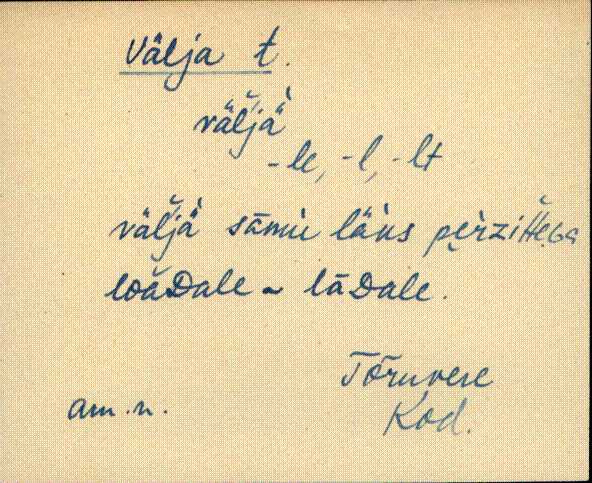 Välja t.
väľjä̀
-le, -l, -lt
väľjä̀ sāmìe läńs pèrziťťega
loāDale ~ lāDale.
Tõruvere
am. n. Kod.